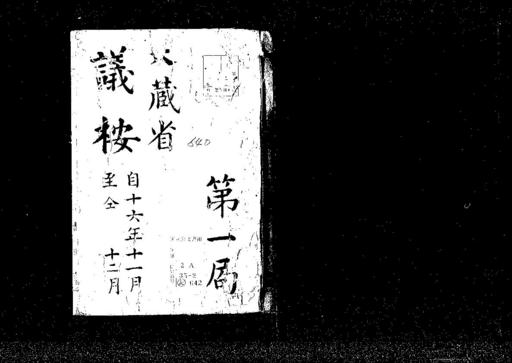 第一局
大蔵省
議按
自十六年十一月
至仝 十二月
640
2A
35-2
642